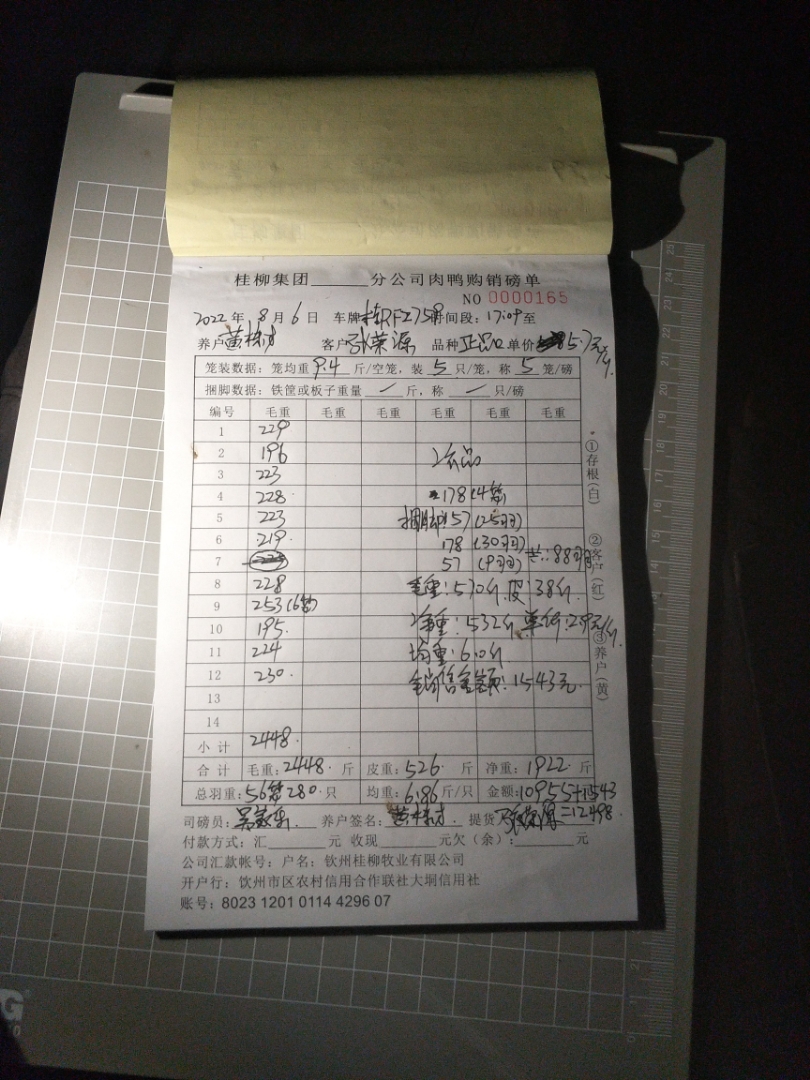 桂柳集团______分公司肉鸭购销磅单
NO 0000165
2022 年 8 月 6 日 车牌 时间段: 17:09 至
养户 客户 孙荣源 品种 正品 单价 5.7元/斤
笼装数据: 笼均重 9.4 斤/空笼, 装 5 只/笼, 称 5 笼/磅
捆脚数据: 铁筐或板子重量 / 斤, 称 / 只/磅
编号 毛重 毛重 毛重 毛重 毛重 毛重
1 229
2 196 次品
3 223
4 228 178 (4笼)
5 223 捆脚 157 (25羽)
6 219 178 (30羽)
7 57 (9羽) 共: 88羽
8 228 毛重: 570斤 皮: 38斤
9 253 (6笼)
10 195 净重: 532斤 单价: 2.9元/斤
11 224 均重: 6.0斤
12 230 销售金额: 1543元
13
14
小计 2448
合计 毛重: 2448 斤 皮重: 526 斤 净重: 1922 斤
总羽重: 56笼 280 只 均重: 6.86 斤/只 金额: 10955+1543
=12498
司磅员: 养户签名: 提货
付款方式: 汇______元 收现______元欠(余): ______元
公司汇款帐号: 户名: 钦州桂柳牧业有限公司
开户行: 钦州市区农村信用合作联社大垌信用社
账号: 8023 1201 0114 4296 07
①存根(白) ②客户(红) ③养户(黄)